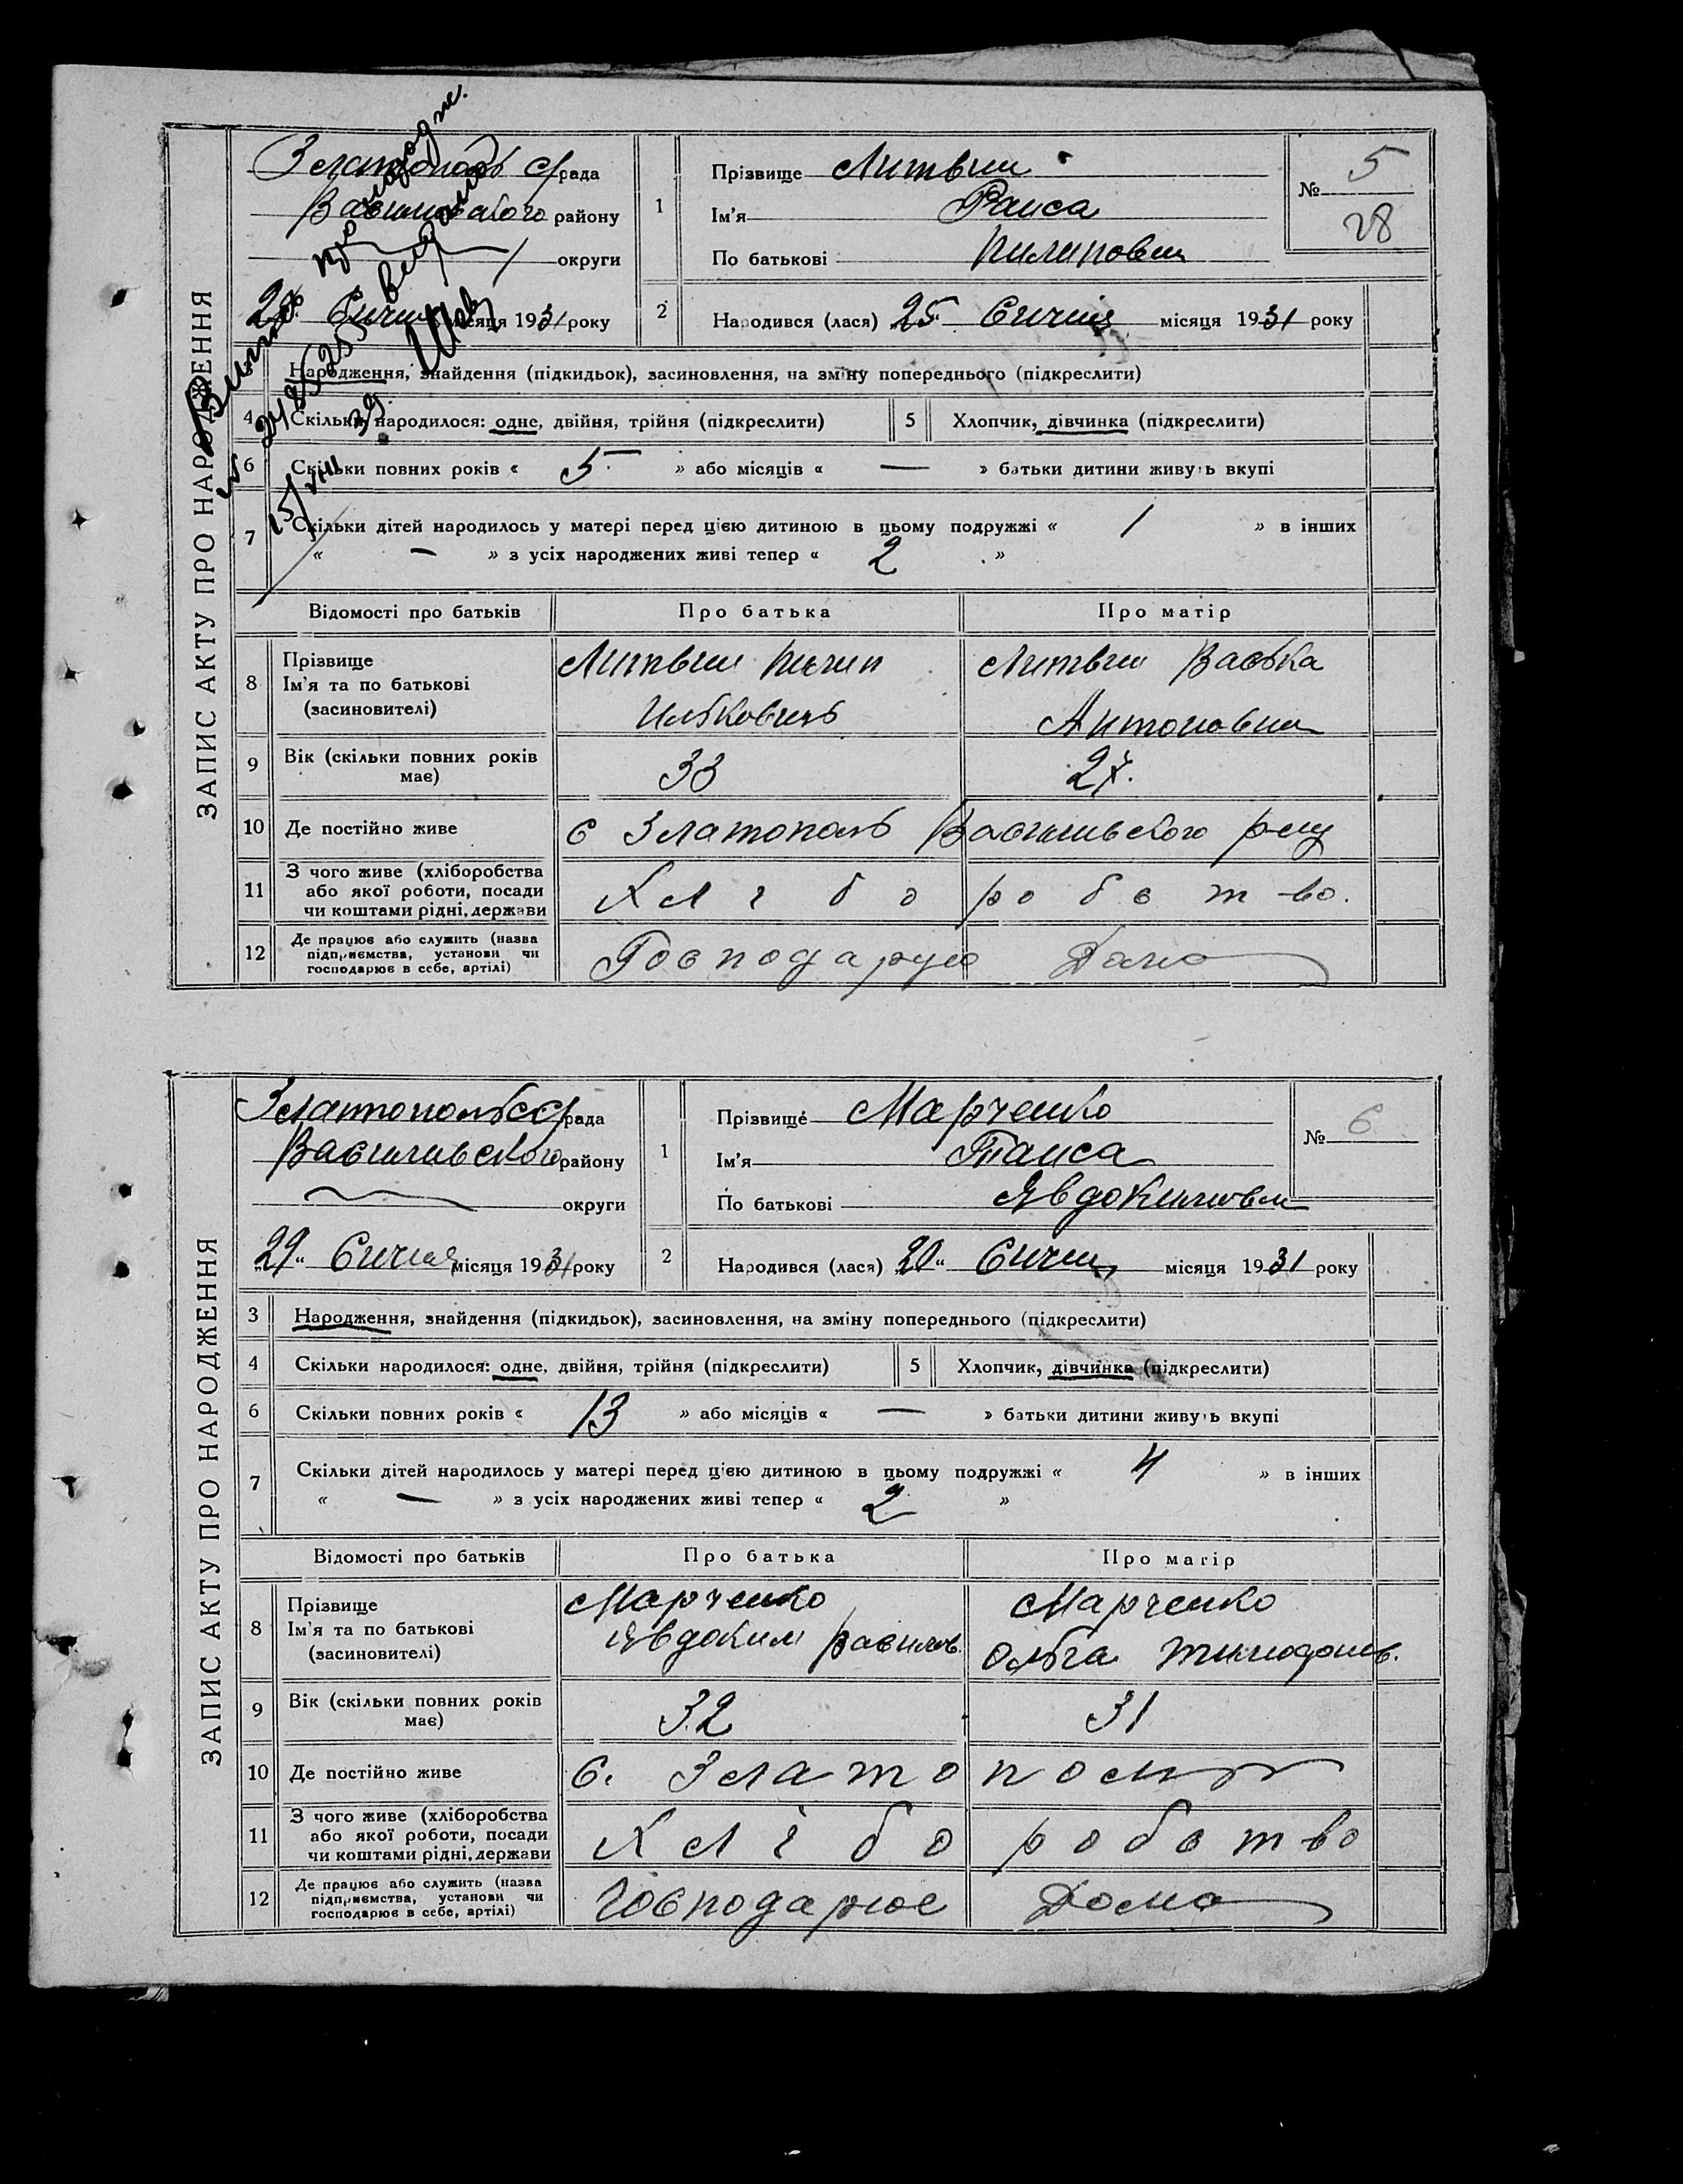 ЗАПИС АКТУ ПРО НАРОДЖЕННЯ
Златополь с/рада
Василивського району
округи
Січня місяця 1931 року
1
Прізвище Литвин
Ім'я Раиса
По батькові Пилиповна
№ 5
28
2
Народився (лася) 25 Січня місяця 1931 року
Народження, знайдення (підкидьок), засиновлення, на зміну попереднього (підкреслити)
4 Скільки народилося: одне, двійня, трійня (підкреслити)
5 Хлопчик, дівчинка (підкреслити)
6 Скільки повних років « 5 » або місяців « — » батьки дитини живуть вкупі
7 Скільки дітей народилось у матері перед цією дитиною в цьому подружжі « 1 » в інших
« — » з усіх народжених живі тепер « 2 »
Відомості про батьків
Про батька
Про матір
8 Прізвище
Ім'я та по батькові
(засиновителі)
Литвин Пилип
Илькович
Литвин Васька
Антоновна
9 Вік (скільки повних років
має)
33
27.
10 Де постійно живе
с Златополь Василивського р-ну
11 З чого живе (хліборобства
або якої роботи, посади
чи коштами рідні, держави
Хліборобство.
12 Де працює або служить (назва
підприємства, установи чи
господарює в себе, артілі)
Господарює Дома
ЗАПИС АКТУ ПРО НАРОДЖЕННЯ
Златопольс с/рада
Василивського району
округи
29" Січня місяця 1931 року
1
Прізвище Марченко
Ім'я Таиса
По батькові Явдокимовна
№ 6
2
Народився (лася) 20" Січня місяця 1931 року
3 Народження, знайдення (підкидьок), засиновлення, на зміну попереднього (підкреслити)
4 Скільки народилося: одне, двійня, трійня (підкреслити)
5 Хлопчик, дівчинка (підкреслити)
6 Скільки повних років « 13 » або місяців « — » батьки дитини живуть вкупі
7 Скільки дітей народилось у матері перед цією дитиною в цьому подружжі « 4 » в інших
« — » з усіх народжених живі тепер « 2 »
Відомості про батьків
Про батька
Про матір
8 Прізвище
Ім'я та по батькові
(засиновителі)
Марченко
Явдоким Василов.
Марченко
Ольга
9 Вік (скільки повних років
має)
32
31
10 Де постійно живе
с. Златополь
11 З чого живе (хліборобства
або якої роботи, посади
чи коштами рідні, держави
Хліборобство
12 Де працює або служить (назва
підприємства, установи чи
господарює в себе, артілі)
Господарює Дома